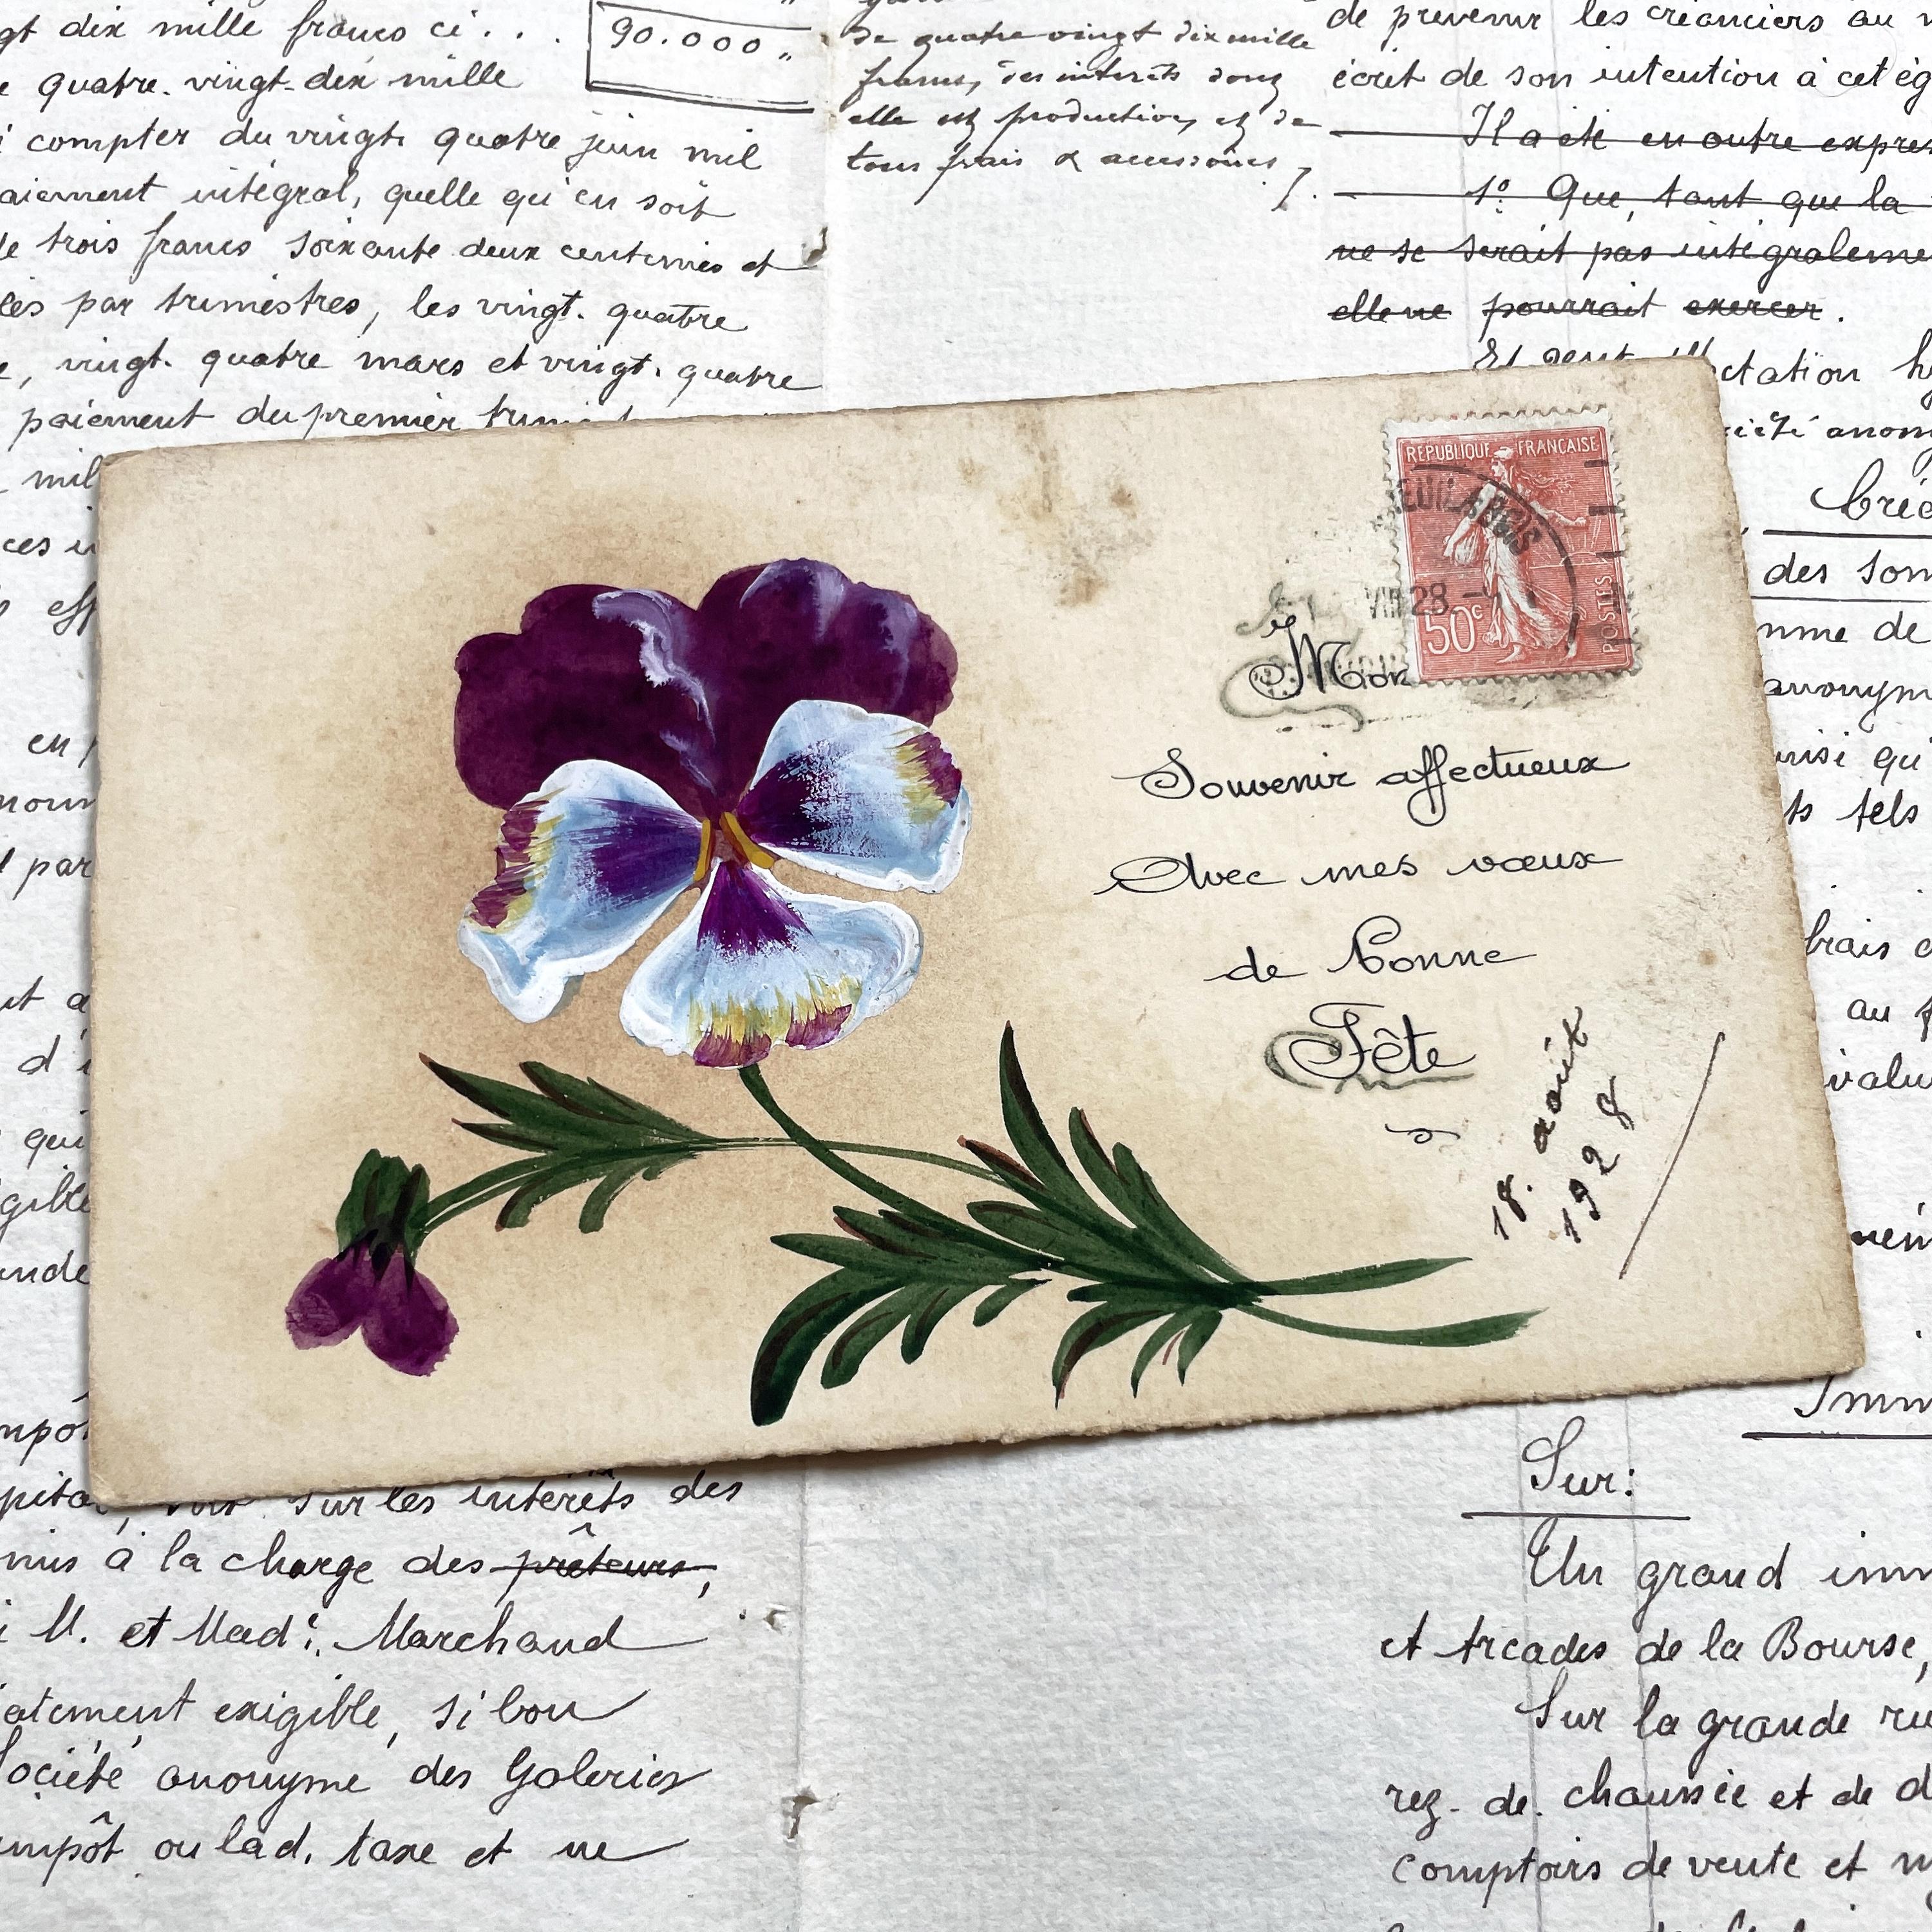 gt dix mille francs ci . . .
90.000 "
quatre-vingt-dix mille
compter du vingt quatre juin mil
aiement intégral, quelle qu'en soit
de trois francs soixante deux centimes et
par trimestres, les vingt-quatre
, vingt-quatre mars et vingt-quatre
paiement du premier
mil
de quatre vingt dix mille
francs, des intérêts dont
elle est production, et de
tous frais & accessoires ./.
de prévenir les créanciers au
écrit de son intention à cet ég
Il a été en outre expres
1º. Que, tant que la
ne se serait pas intégraleme
elle ne pourrait exercer.
ctation hy
anony
des som
mme de
anonym
qui
tels
au
REPUBLIQUE FRANÇAISE
POSTES
50c
VIII 28
Mon
Souvenir affectueux
Avec mes vœux
de Bonne
Fête
18. août
1928
en
par
qui
sur les intérêts des
mis à la charge des prêteurs,
M. et Made. Marchand
atement exigible, si bon
Société anonyme des Galeries
impôt ou lad. taxe et ne
Sur:
Un grand imm
et Arcades de la Bourse,
Sur la grande ru
rez-de-chaussée et de d
comptoirs de vente et m